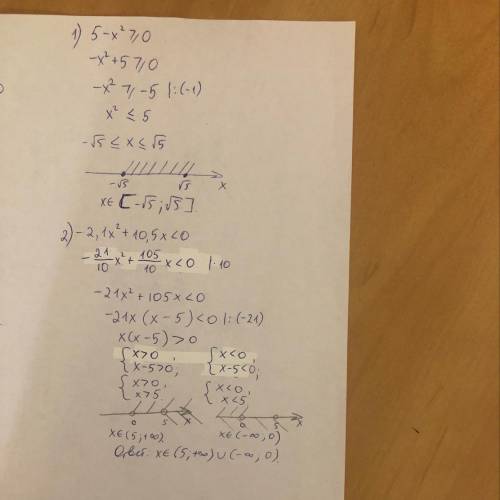 1) 5-x²⩾0
-x²+5⩾0
-x² ⩾ -5 |:(-1)
x² ≤ 5
-√5 ≤ x ≤ √5
-√5 √5 x
x∈ [-√5; √5].
2) -2,1x²+10,5x<0
-21/10 x² + 105/10 x<0 |·10
-21x²+105x<0
-21x(x-5)<0 |:(-21)
x(x-5)>0
{x>0, x-5>0; {x<0, x-5<0;
{x>0, x>5 {x<0, x<5
0 5 x 0 5 x
x∈(5;+∞) x∈(-∞,0)
Ответ: x∈(5,+∞)∪(-∞,0).